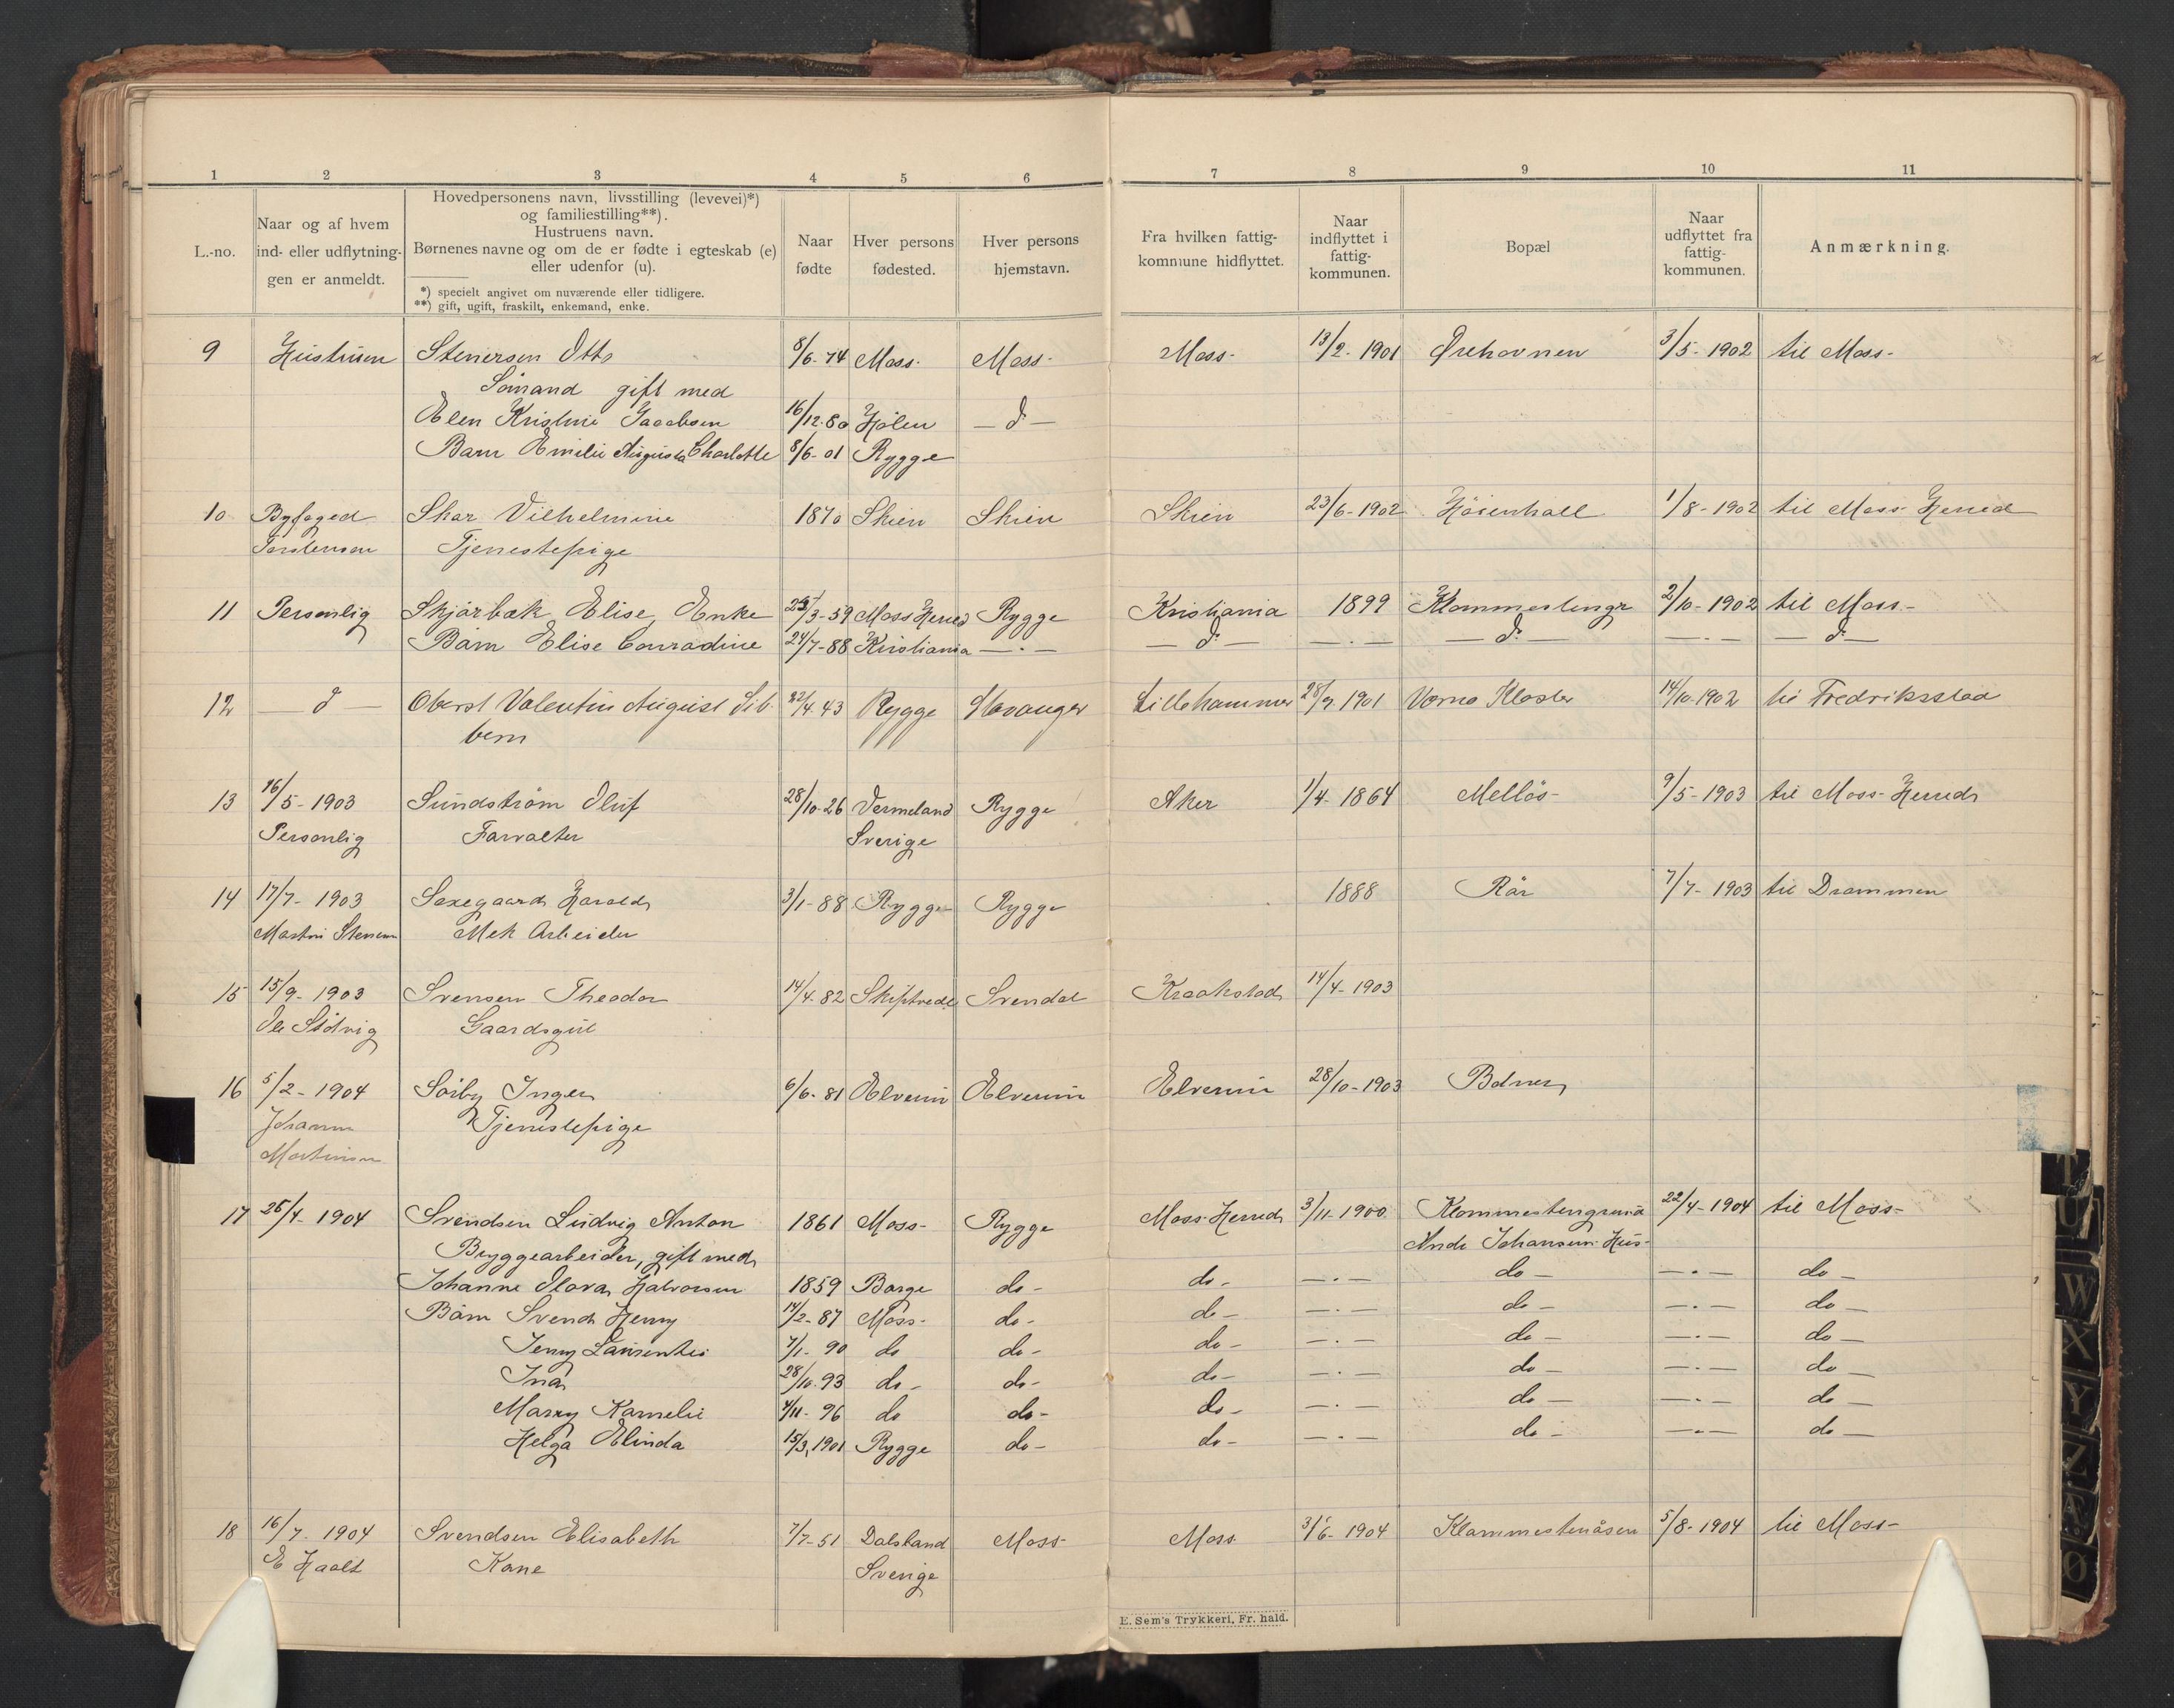 1 2 3 4 5 6 7 8 9 10 11
L.-no.
Naar og af hvem
ind- eller udflytnin-
gen er anmeldt.
Hovedpersonens navn, livsstilling (levevei)*)
og familiestilling**).
Hustruens navn.
Børnenes navne og om de er fødte i egteskab (e)
eller udenfor (u).
*) specielt angivet om nuværende eller tidligere.
**) gift, ugift, fraskilt, enkemand, enke.
Naar
fødte
Hver persons
fødested.
Hver persons
hjemstavn.
Fra hvilken fattig-
kommune hidflyttet.
Naar
indflyttet i
fattig-
kommunen.
Bopæl
Naar
udflyttet fra
fattig-
kommunen.
Anmærkning.
9 Hustruen Stenersen Otto 8/6-74 Moss- Moss- Moss- 13/2-1901 Ørehavnen 3/5-1902 til Moss-
Sømand gift med
Elen Kristine Jacobsen 16/12-80 Hølen — d —
Barn Emilie Augusta Charlotte 8/6-01 Rygge
10 Byfoged Skar Vilhelmine 1870 Skien Skien Skien 23/6-1902 Høienhall 1/8-1902 til Moss Herred
Torstensen Tjenestepige
11 Personlig Skjørbæk Elise, Enke 3-59 Moss Herred Rygge Kristiania 1899 Klommestengr 2/10-1902 til Moss-
Barn Elise Conradine 24/7-88 Kristiania — . — — d — — . — — d — — . — — d —
12 — d — Oberst Valentin August Sib- 22/4 43 Rygge Stavanger Lillehammer 28/9 1901 Værne Kloster 14/10 1902 til Fredriksstad
bern
13 16/5-1903 Sundstrøm Oluf 28/10-26 Vermeland Rygge Aker 1/4-1864 Melløs- 9/5-1903 til Moss-Herred
Personlig Forvalter Sverige
14 17/7-1903 Saxegaard Harald 3/1-88 Rygge Rygge 1888 Rør 7/7-1903 til Drammen
Martin Stensen Mek Arbeider
15 15/9-1903 Svensen Theodor 14/4-82 Skiptvedt Svendal Kraakstad 14/4-1903
Ole Stølvig Gaardsgut
16 5/2-1904 Sørby Inger 6/6-81 Elverum Elverum Elverum 28/10-1903 Bolner
Johann Tjenestepige
Martinsen
17 25/4-1904 Svendsen Ludvig Anton 1861 Moss- Rygge Moss-Herred 3/11-1900 Klommestengrund 22/4-1904 til Moss-
Bryggearbeider, gift med Andr Johansens Hus-
Johanne Olava Halvorsen 1859 Borge do- do- — . — do — — . — do —
Børn Svend Henry 14/2-87 Moss- do- do — — . — do — — . — do —
Jenny Laurentze 7/1-90 do do- do — — . — do — — . — do —
Ina 28/10-93 do- do- do — — . — do — — . — do —
Marry Kamelie 4/11-96 do do- do — — . — do — — . — do —
Helga Elinda 15/3, 1901 Rygge do- do — — . — do — — . — do —
18 16/7-1904 Svendsen Elisabeth 7/7-51 Dalsland Moss- Moss 3/6-1904 Klommestenåsen 5/8-1904 til Moss-
E Haalt Kone Sverige
E. Sem's Trykkeri, Fr. hald.
T
U
W
X
Y
Z
Ø